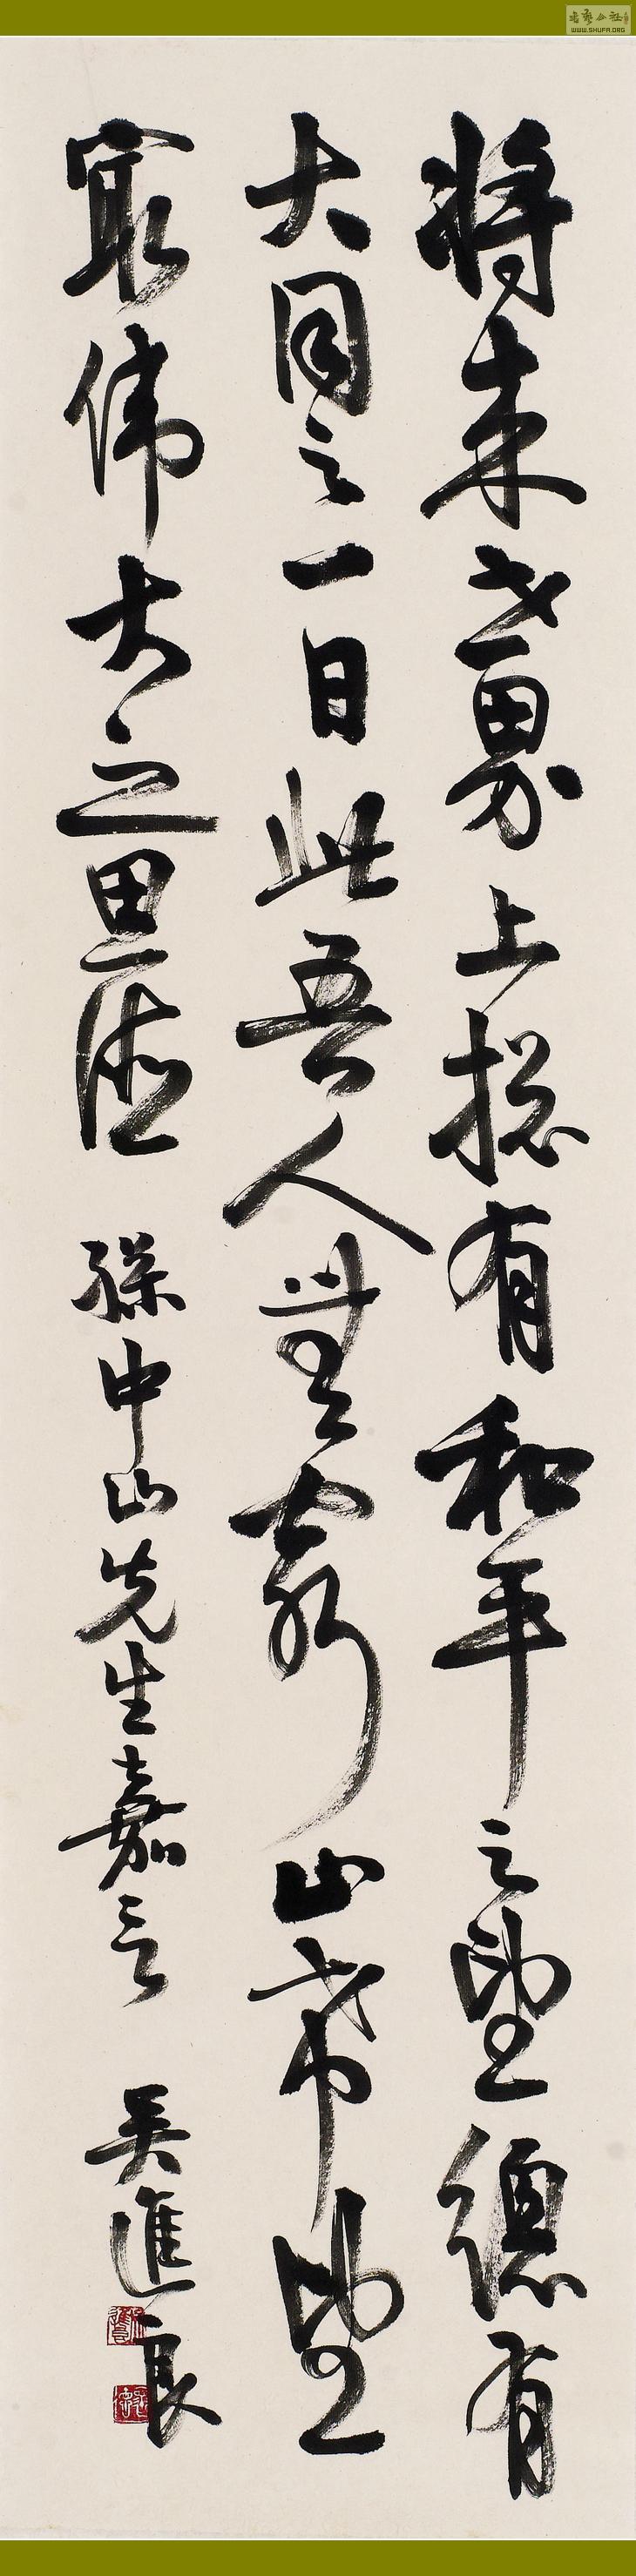 书艺公社
WWW.SHUFA.ORG
將来世界上揔有和平之望總有
大同之一日此吾人無窮之希望
冣偉大之思想 孫中山先生嘉言 吴進良